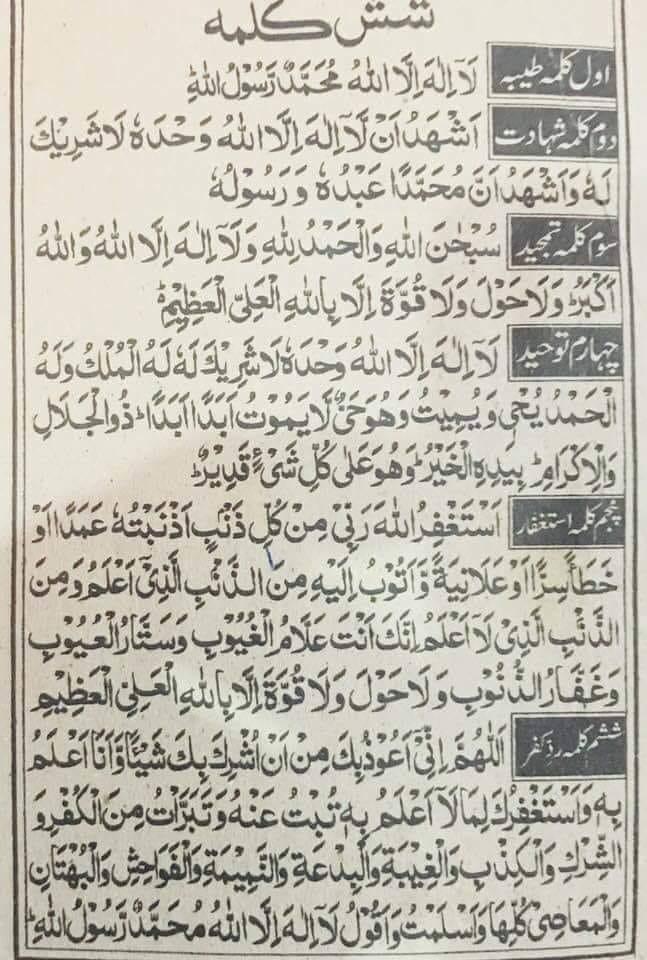 شش کلمه
اول کلمہ طیبہ لَآ اِلٰهَ اِلَّا اللّٰهُ مُحَمَّدٌ رَّسُوْلُ اللّٰهِؕ
دوم کلمہ شہادت اَشْهَدُ اَنْ لَّآ اِلٰهَ اِلَّا اللّٰهُ وَحْدَهٗ لَا شَرِيْكَ
لَهٗ وَاَشْهَدُ اَنَّ مُحَمَّدًا عَبْدُهٗ وَرَسُوْلُهٗ
سوم کلمہ تمجید سُبْحٰنَ اللّٰهِ وَالْحَمْدُ لِلّٰهِ وَلَآ اِلٰهَ اِلَّا اللّٰهُ وَاللّٰهُ
اَكْبَرُؕ وَلَا حَوْلَ وَلَا قُوَّةَ اِلَّا بِاللّٰهِ الْعَلِيِّ الْعَظِيْمِؕ
چہارم توحید لَآ اِلٰهَ اِلَّا اللّٰهُ وَحْدَهٗ لَا شَرِيْكَ لَهٗ لَهُ الْمُلْكُ وَلَهُ
الْحَمْدُ يُحْيٖ وَيُمِيْتُ وَهُوَ حَيٌّ لَّا يَمُوْتُ اَبَدًا اَبَدًاؕ ذُو الْجَلَالِ
وَالْاِكْرَامِؕ بِيَدِهِ الْخَيْرُؕ وَهُوَ عَلٰى كُلِّ شَيْءٍ قَدِيْرٌؕ
پنجم کلمہ استغفار اَسْتَغْفِرُ اللّٰهَ رَبِّيْ مِنْ كُلِّ ذَنْۢبٍ اَذْنَبْتُهٗ عَمَدًا اَوْ
خَطَأً سِرًّا اَوْ عَلَانِيَةً وَّاَتُوْبُ اِلَيْهِ مِنَ الذَّنْۢبِ الَّذِيْٓ اَعْلَمُ وَمِنَ
الذَّنْۢبِ الَّذِيْ لَآ اَعْلَمُ اِنَّكَ اَنْتَ عَلَّامُ الْغُيُوْبِ وَسَتَّارُ الْعُيُوْبِ
وَغَفَّارُ الذُّنُوْبِ وَلَا حَوْلَ وَلَا قُوَّةَ اِلَّا بِاللّٰهِ الْعَلِيِّ الْعَظِيْمِ
ششم کلمہ رد کفر اَللّٰهُمَّ اِنِّيْٓ اَعُوْذُ بِكَ مِنْ اَنْ اُشْرِكَ بِكَ شَيْئًا وَّاَنَا اَعْلَمُ
بِهٖ وَاَسْتَغْفِرُكَ لِمَا لَآ اَعْلَمُ بِهٖ تُبْتُ عَنْهُ وَتَبَرَّاْتُ مِنَ الْكُفْرِ وَ
الشِّرْكِ وَالْكِذْبِ وَالْغِيْبَةِ وَالْبِدْعَةِ وَالنَّمِيْمَةِ وَالْفَوَاحِشِ وَالْبُهْتَانِ
وَالْمَعَاصِيْ كُلِّهَا وَاَسْلَمْتُ وَاَقُوْلُ لَآ اِلٰهَ اِلَّا اللّٰهُ مُحَمَّدٌ رَّسُوْلُ اللّٰهِؕ